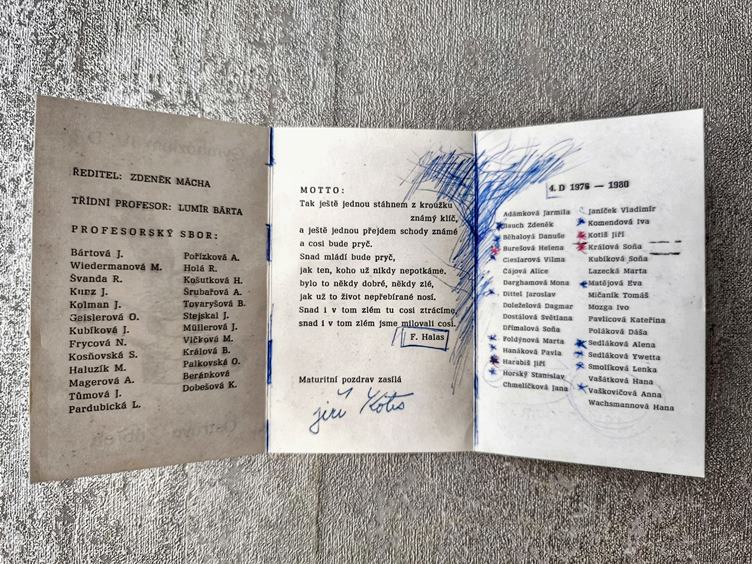 ŘEDITEL: ZDENĚK MÁCHA
TŘÍDNÍ PROFESOR: LUMÍR BÁRTA
PROFESORSKÝ SBOR:
Bártová J.
Wiedermanová M.
Švanda R.
Kunz J.
Kolman J.
Geislerová O.
Kubíková J.
Frycová N.
Kosňovská S.
Haluzík M.
Magerová A.
Tůmová J.
Pardubická L.
Pořízková A.
Holá R.
Košutková H.
Šrubařová A.
Tovaryšová B.
Stejskal J.
Müllerová J.
Vlčková M.
Králová B.
Palkovská O.
Beránková
Dobešová K.
MOTTO:
Tak ještě jednou stáhnem z kroužku
známý klíč,
a ještě jednou přejdem schody známé
a cosi bude pryč.
Snad mládí bude pryč,
jak ten, koho už nikdy nepotkáme,
bylo to někdy dobré, někdy zlé,
jak už to život nepřebírané nosí.
Snad i v tom zlém tu cosi ztrácíme,
snad i v tom zlém jsme milovali cosi.
F. Halas
Maturitní pozdrav zasílá
jiří Kotiš
4. D 1976 — 1980
Adámková Jarmila
Bauch Zdeněk
Běhalová Danuše
Burešová Helena
Cieslarová Vilma
Cájová Alice
Darghamová Mona
Dittel Jaroslav
Doleželová Dagmar
Dostálová Světlana
Dřímalová Soňa
Foldýnová Marta
Hanáková Pavla
Harabiš Jiří
Horský Stanislav
Chmelíčková Jana
Janíček Vladimír
Komendová Iva
Kotiš Jiří
Králová Soňa
Kubíková Soňa
Lazecká Marta
Matějová Eva
Mičaník Tomáš
Mozga Ivo
Pavlicová Kateřina
Poláková Dáša
Sedláková Alena
Sedláková Yvetta
Smolíková Lenka
Vašátková Hana
Vaškovičová Anna
Wachsmannová Hana